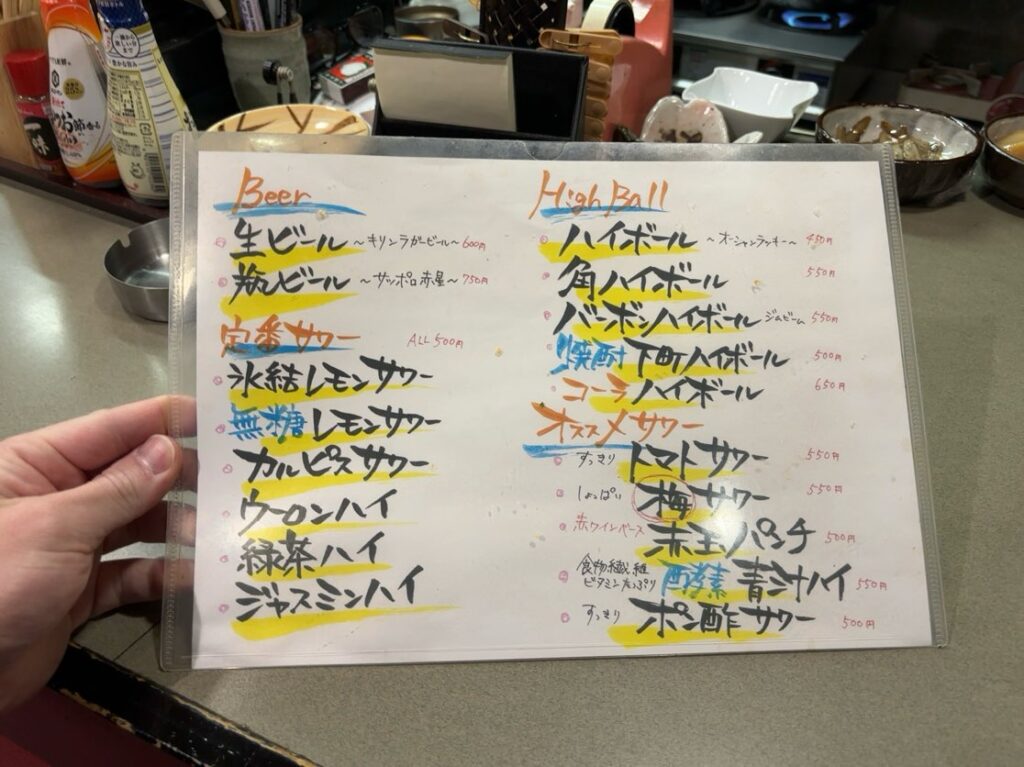 Beer
生ビール ～キリンラガービール～ 600円
瓶ビール ～サッポロ赤星～ 750円
定番サワー ALL 500円
氷結レモンサワー
無糖レモンサワー
カルピスサワー
ウーロンハイ
緑茶ハイ
ジャスミンハイ
High Ball
ハイボール ～オーシャンラッキー～ 450円
角ハイボール 550円
バーボンハイボール ジムビーム 550円
焼酎下町ハイボール 500円
コーラハイボール 650円
オススメサワー
すっきり トマトサワー 550円
しょっぱい 梅サワー 550円
赤ワインベース 赤玉パンチ 500円
食物繊維
ビタミンたっぷり 酵素青汁ハイ 550円
すっきり ポン酢サワー 500円